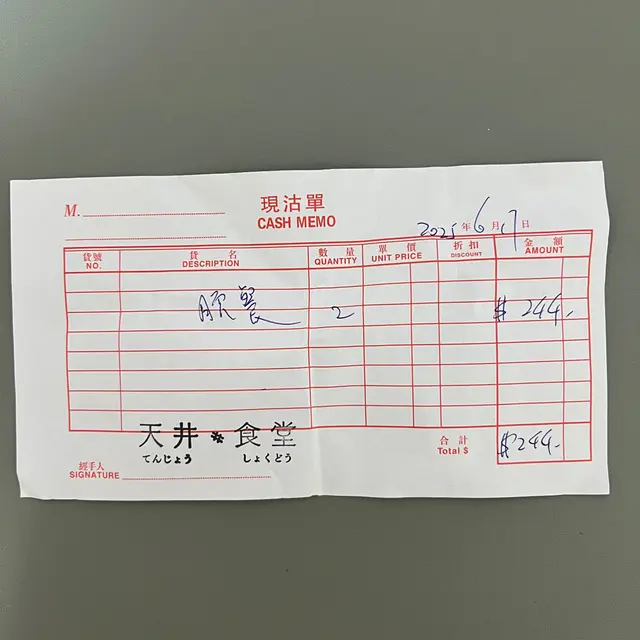 現沽單
M.
CASH MEMO
2025年6月17日
貨號 貨名 數量 單價 折扣 金額
NO. DESCRIPTION QUANTITY UNIT PRICE DISCOUNT AMOUNT
晚餐 2 $244.
天井 食堂
てんじょう しょくどう
合計 $244.
Total $
經手人
SIGNATURE